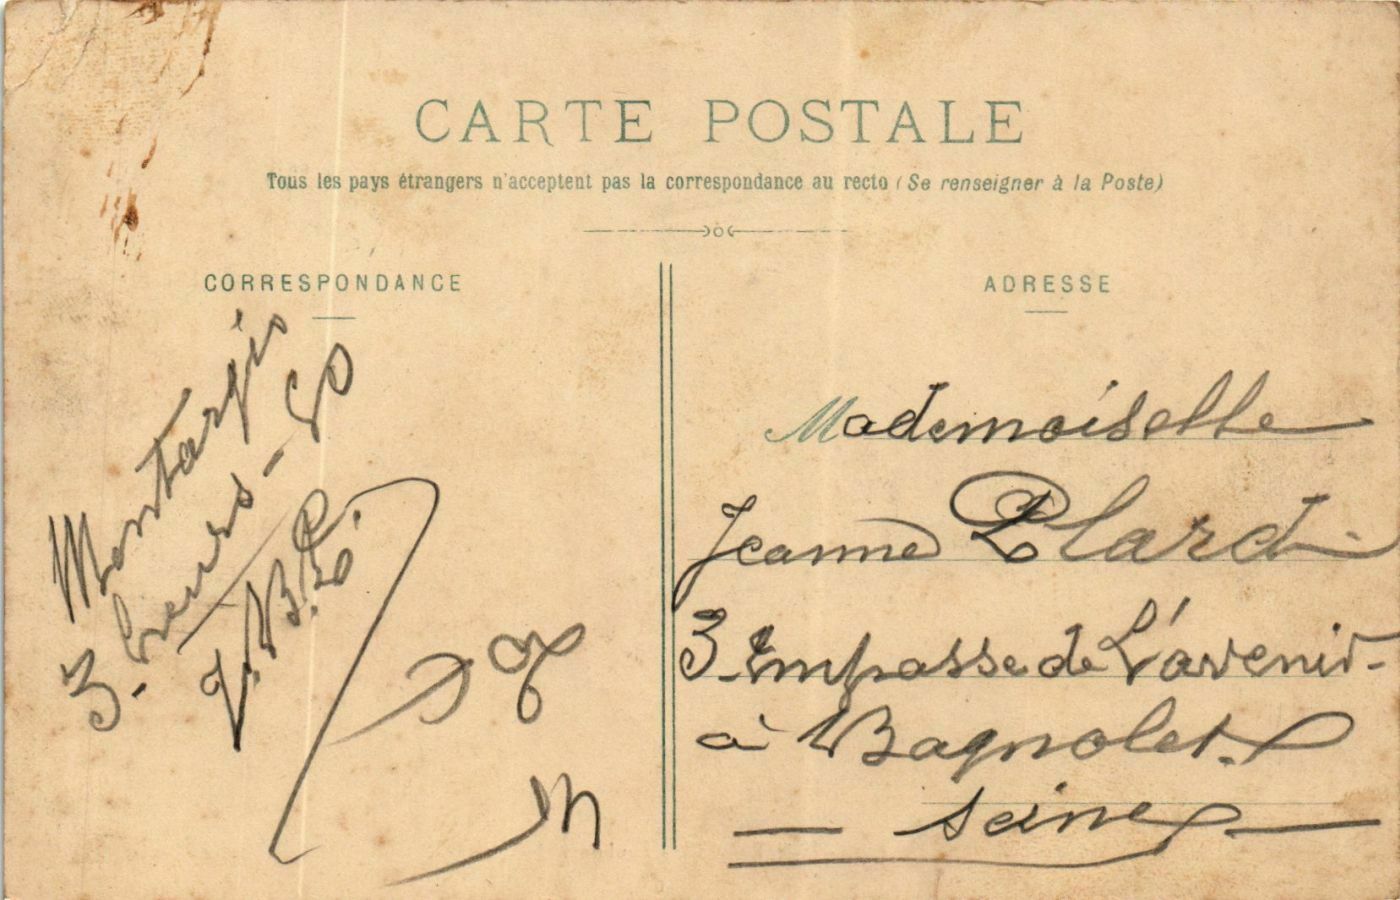 CARTE POSTALE
Tous les pays étrangers n'acceptent pas la correspondance au recto (Se renseigner à la Poste)
CORRESPONDANCE
Montargis
3
ADRESSE
Mademoiselle
Jeanne Plard
3 Impasse de L'avenir
à Bagnolet
Seine